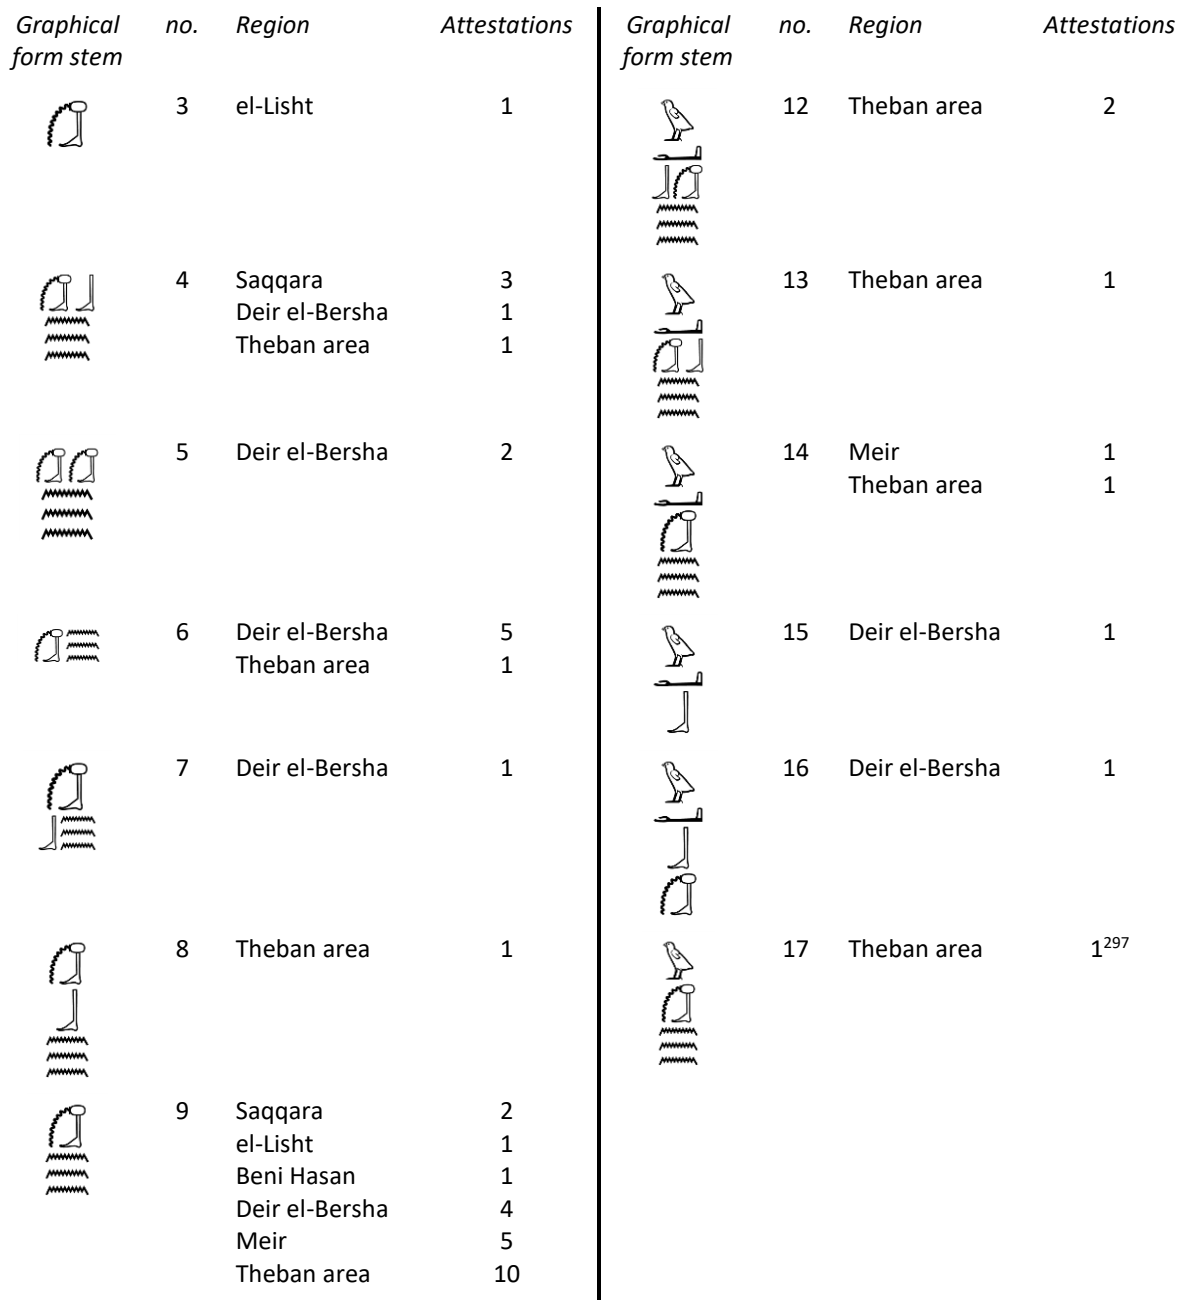 Graphical form stem no. Region Attestations
𓃂 3 el-Lisht 1
𓃂𓃀 4 Saqqara 3
𓈗 Deir el-Bersha 1
Theban area 1
𓃂𓃂 5 Deir el-Bersha 2
𓈗
𓃂𓈗 6 Deir el-Bersha 5
Theban area 1
𓃂 7 Deir el-Bersha 1
𓃀𓈗
𓃂 8 Theban area 1
𓃀
𓈗
𓃂 9 Saqqara 2
𓈗 el-Lisht 1
Beni Hasan 1
Deir el-Bersha 4
Meir 5
Theban area 10
Graphical form stem no. Region Attestations
𓅱 12 Theban area 2
𓂝
𓃀𓃂
𓈗
𓅱 13 Theban area 1
𓂝
𓃂𓃀
𓈗
𓅱 14 Meir 1
𓂝 Theban area 1
𓃂
𓈗
𓅱 15 Deir el-Bersha 1
𓂝
𓃀
𓅱 16 Deir el-Bersha 1
𓂝
𓃀
𓃂
𓅱 17 Theban area 1²⁹⁷
𓃂
𓈗